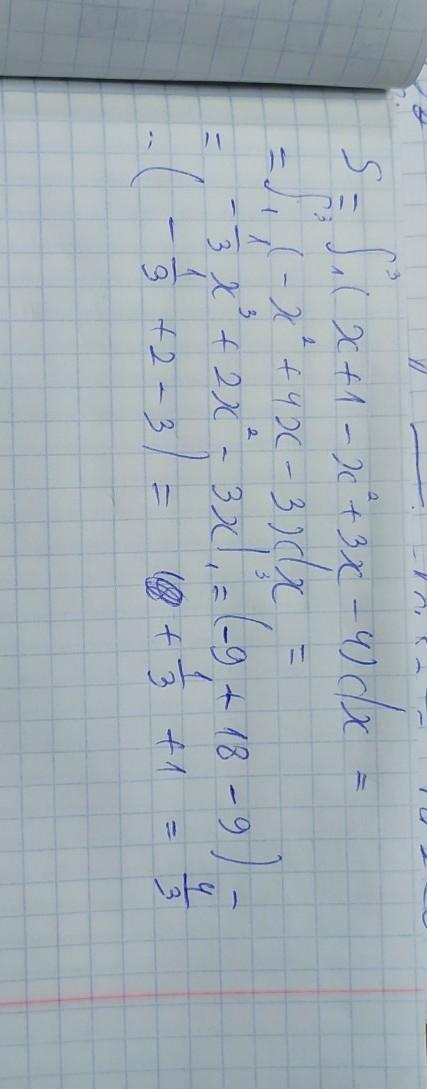 S = ∫₁³ (x + 1 - x² + 3x - 4) dx =
= ∫₁³ (-x² + 4x - 3) dx =
= -1/3 x³ + 2x² - 3x |₁³ = (-9 + 18 - 9) -
- (-1/3 + 2 - 3) = + 1/3 + 1 = 4/3